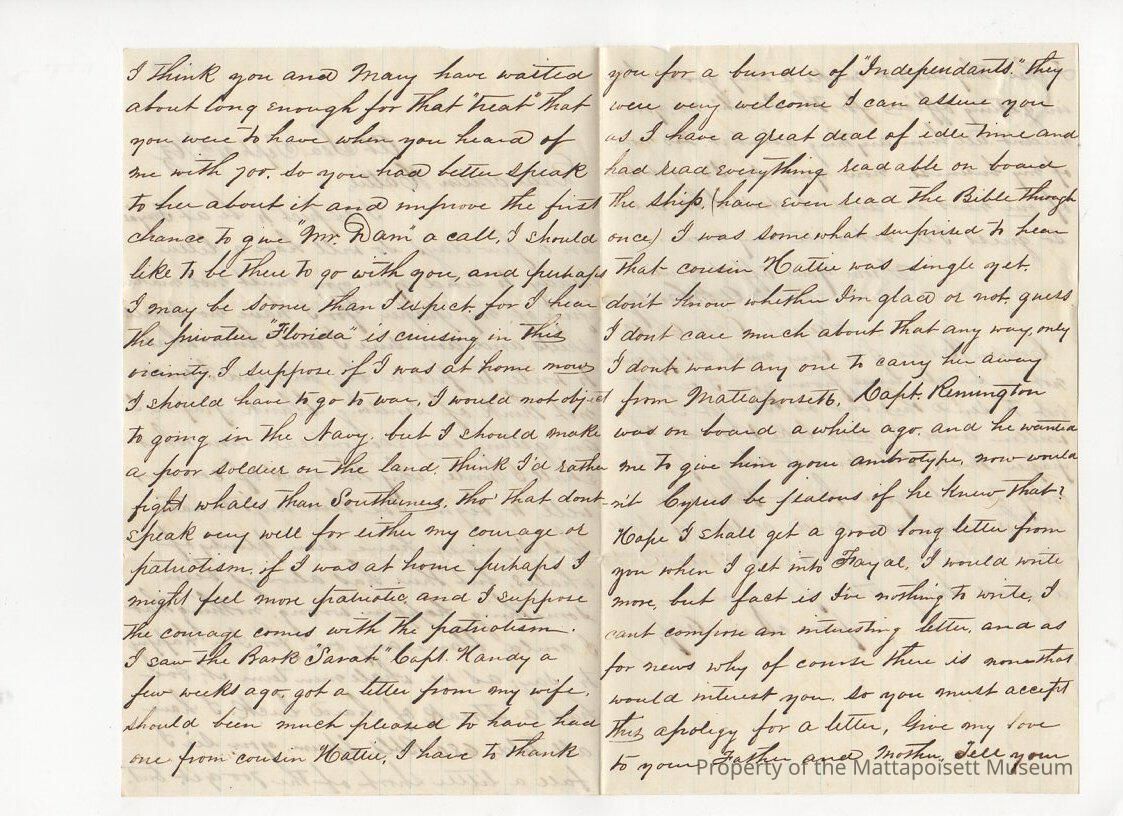 I think you and Mary have waited
about long enough for that "treat" that
you were to have when you heard of
me with 700. so you had better speak
to her about it and improve the first
chance to give "Mr. Dam" a call, I should
like to be there to go with you, and perhaps
I may be sooner than I expect. for I hear
the privateer "Florida" is cruising in this
vicinity, I suppose if I was at home now
I should have to go to war, I would not object
to going in the Navy. but I should make
a poor soldier on the land. think I'd rather
fight whales than Southerners, tho' that dont
speak very well for either my courage or
patriotism, if I was at home perhaps I
might feel more patriotic, and I suppose
the courage comes with the patriotism.
I saw the Bark "Sarah" Capt. Handy a
few weeks ago. got a letter from my wife.
should been much pleased to have had
one from cousin Hattie, I have to thank
you for a bundle of "Independants." they
were very welcome I can assure you
as I have a great deal of idle time and
had read everything readable on board
the ship, (have even read the Bible through
once) I was somewhat surprised to hear
that cousin Hattie was single yet.
don't know whether I'm glad or not, guess
I dont care much about that any way, only
I dont want any one to carry her away
from Mattapoisett. Capt. Remington
was on board a while ago. and he wanted
me to give him your ambrotype, now would
n't Cyrus be jealous if he knew that?
Hope I shall get a good long letter from
you when I get into Fayal, I would write
more, but fact is I've nothing to write, I
cant compose an interesting letter, and as
for news why of course there is none that
would interest you. so you must accept
this apology for a letter, Give my love
to your Father and Mother, Tell your
Property of the Mattapoisett Museum